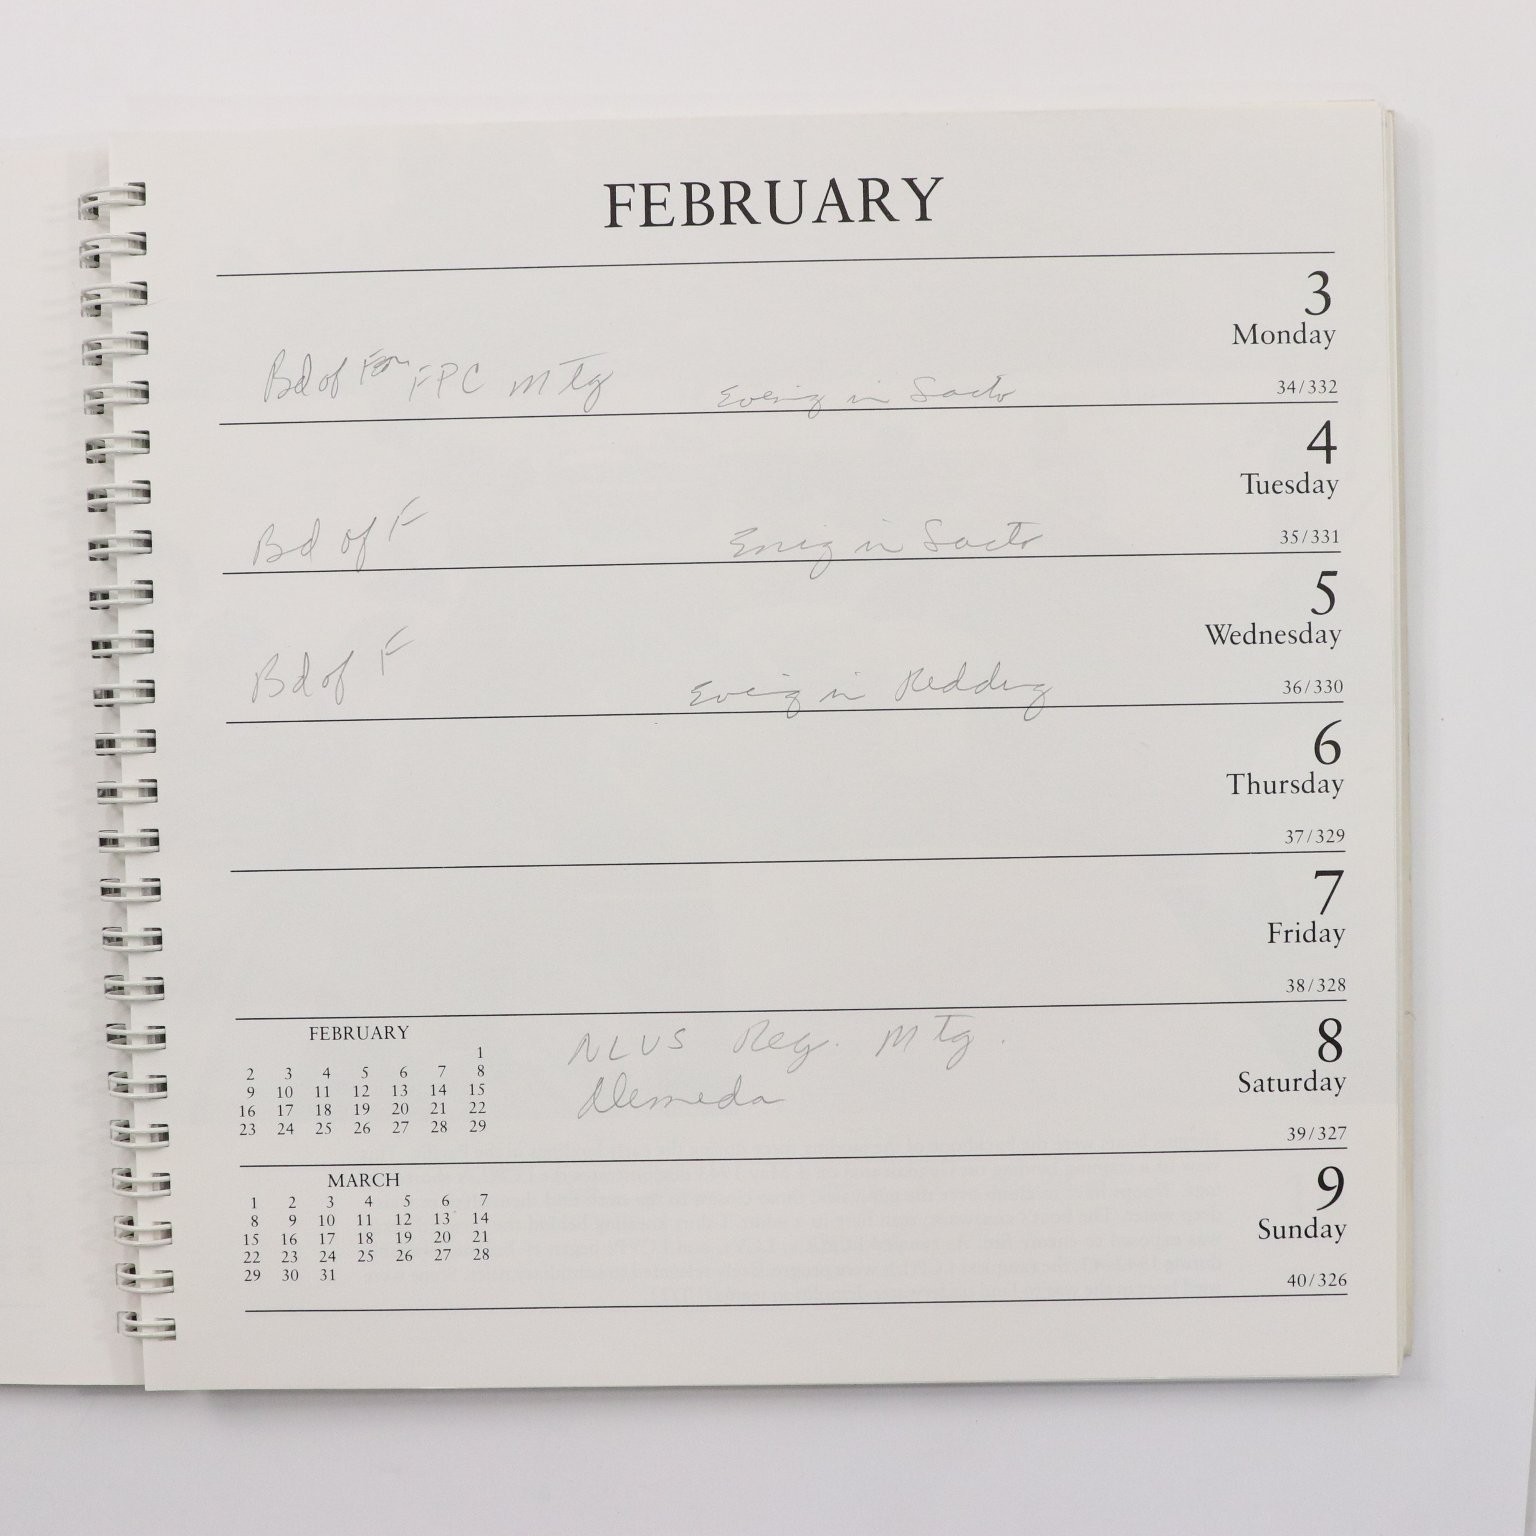 FEBRUARY
3
Monday
Bd of For FPC Mtg Evenig in Sacto
34/332
4
Tuesday
Bd of F Evenig in Sacto
35/331
5
Wednesday
Bd of F Evenig in Redding
36/330
6
Thursday
37/329
7
Friday
38/328
8
Saturday
NLUS Reg. Mtg.
Alemeda
39/327
FEBRUARY
1
2 3 4 5 6 7 8
9 10 11 12 13 14 15
16 17 18 19 20 21 22
23 24 25 26 27 28 29
9
Sunday
40/326
MARCH
1 2 3 4 5 6 7
8 9 10 11 12 13 14
15 16 17 18 19 20 21
22 23 24 25 26 27 28
29 30 31